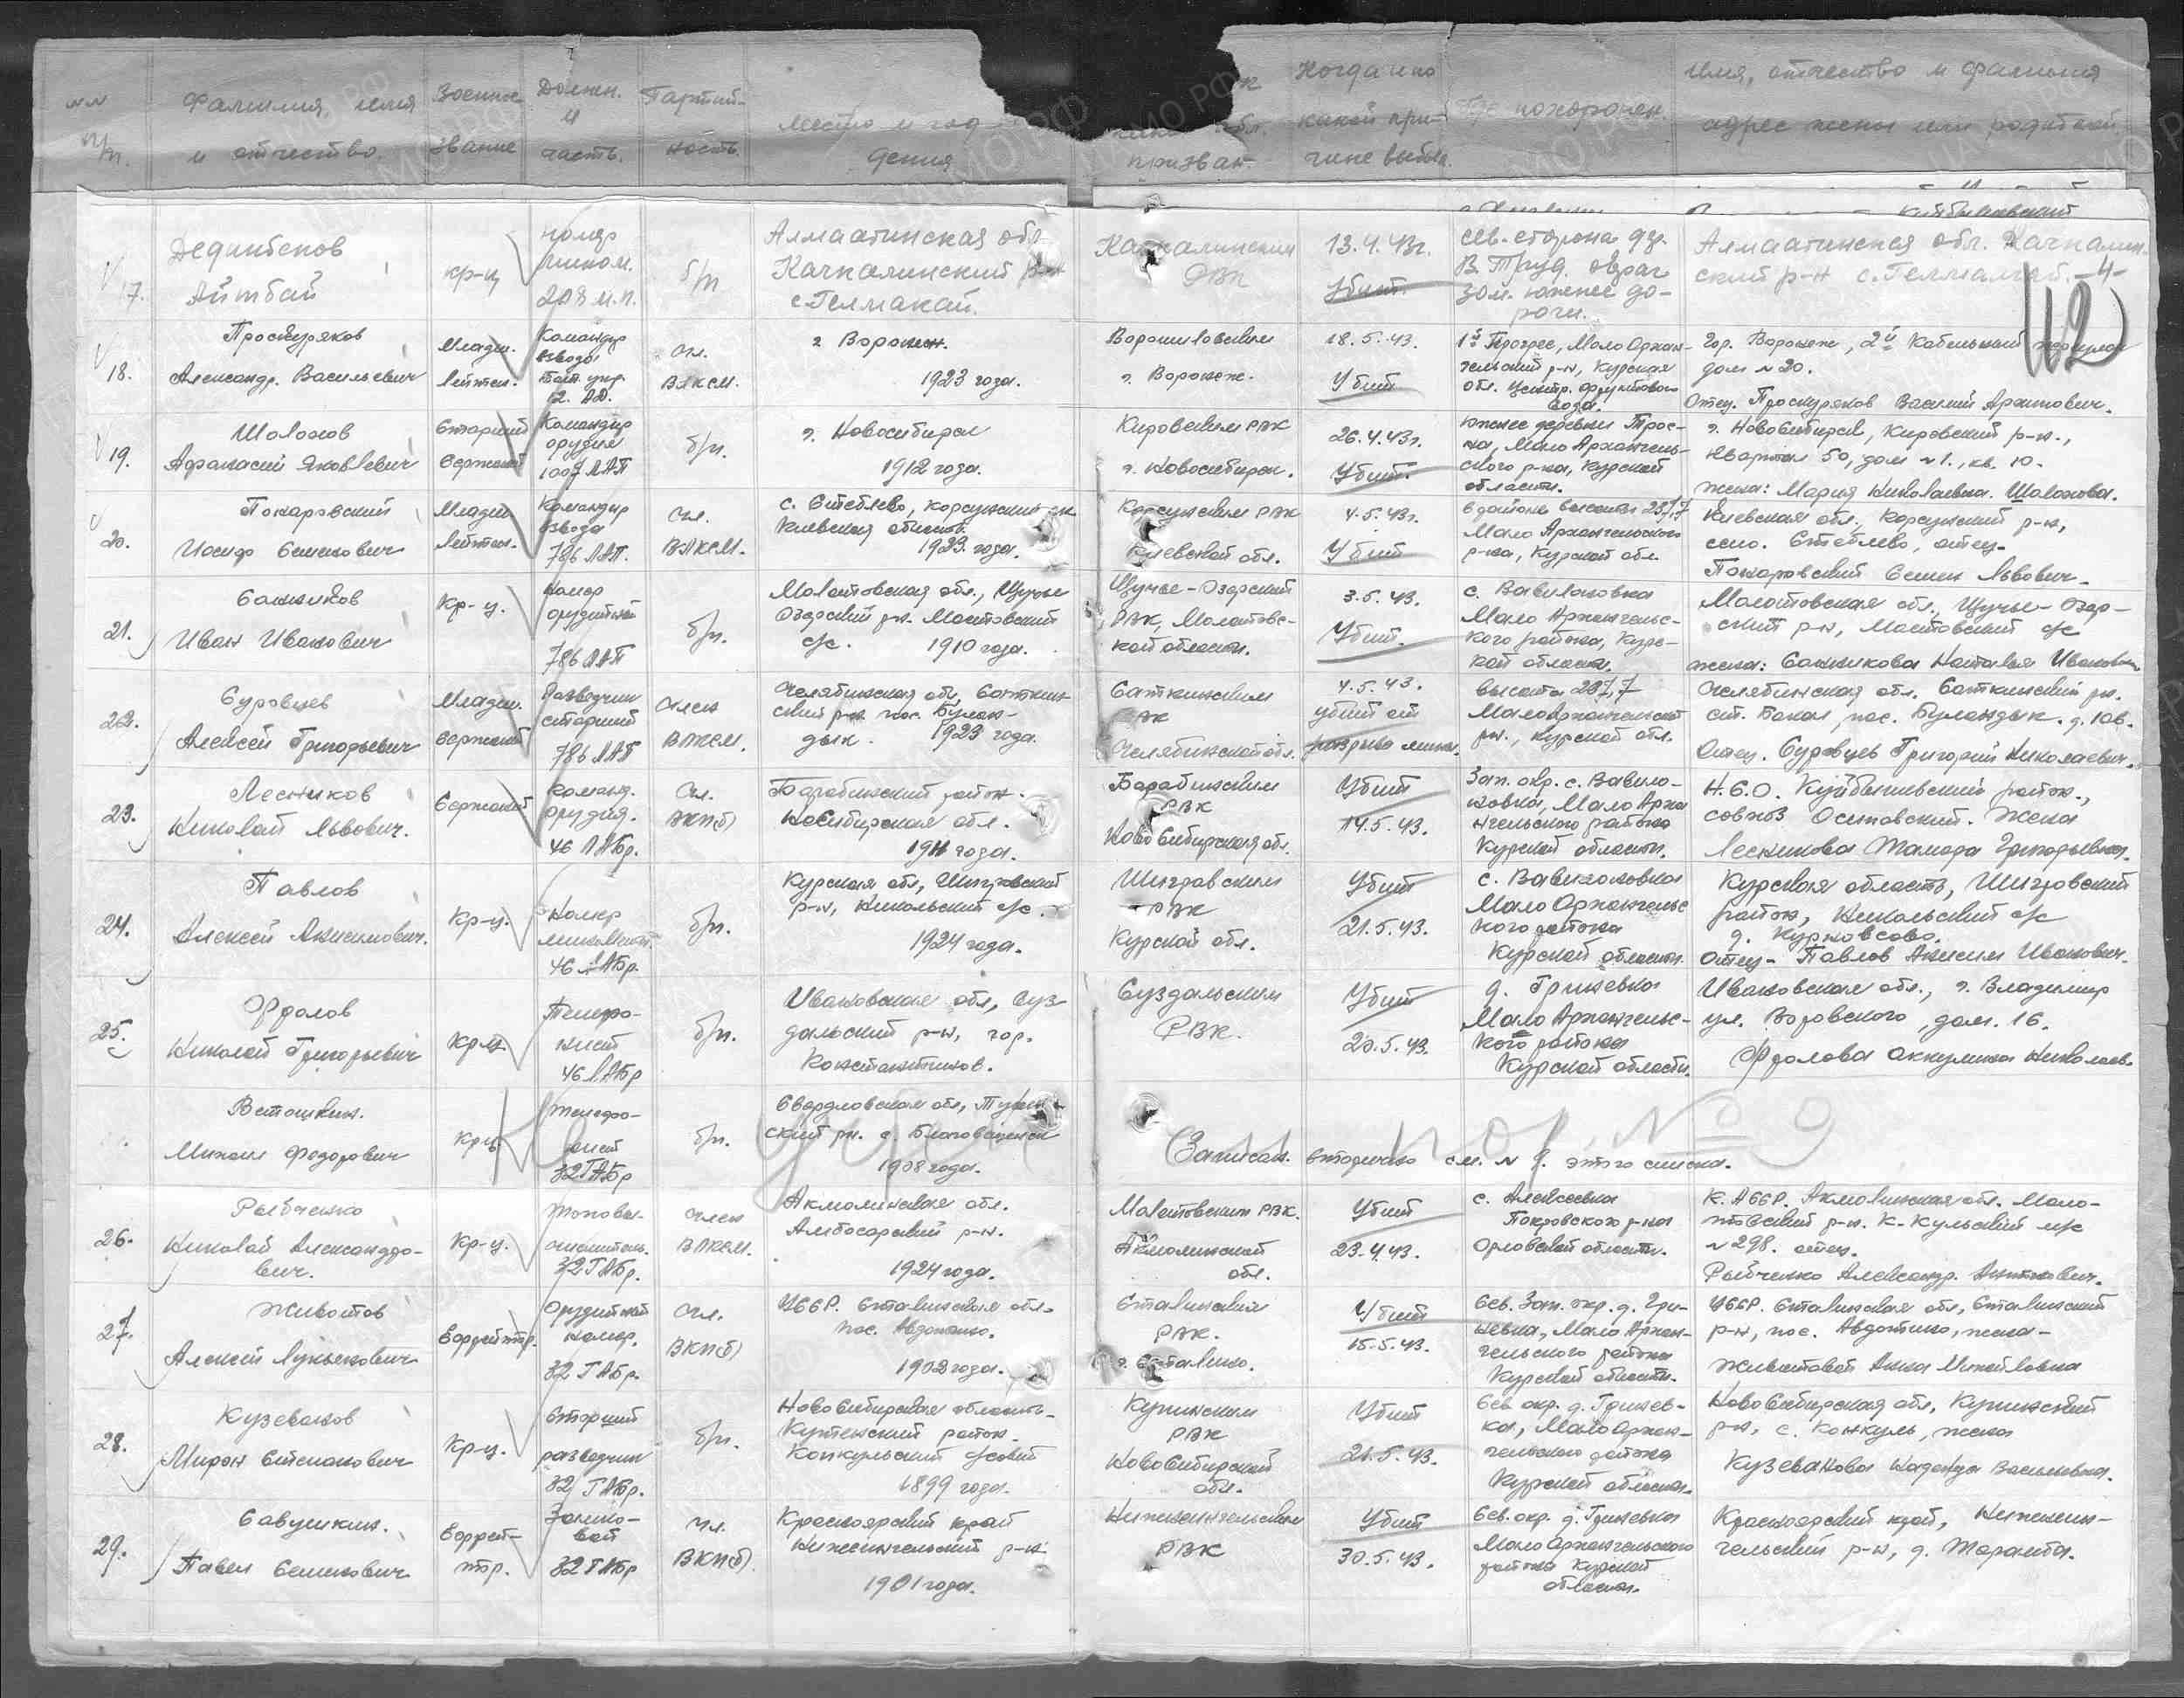 NN п/п.
Фамилия, имя и отчество.
Военное звание
Должн. и часть.
Партий-ность.
Место и год дения
призван.
Когда и по какой при-чине выбыл.
Где похоронен.
Имя, отчество и фамилия
адрес жены или родителей
-4-
17.
Айтбай
кр-ц
номер
мином.
208 м.п.
б/п
Алмаатинская обл.
Качкалинский р-н
РВК
13.4.43г.
Убит.
сев. сторона
В. Труд. овраг
30м. южнее до-
роги.
Алмаатинская обл. Качкалин-
ский р-н
18.
Проскуряков
Александр. Васильевич
Младш.
Лейтен.
Командир
взвода
12. АД.
чл.
ВЛКСМ.
г. Воронеж.
1923 года.
Ворошиловским
г. Воронеж.
18.5.43.
Убит
1й Прогрес, Мало Архан-
гельский р-н, Курская
обл. Центр. фруктового
сада.
Гор. Воронеж, 2й Кабельный
дом №20.
Отец. Проскуряков Василий Архипович.
19.
Шолохов
Афанасий Яковлевич
Старший
Сержант
Командир
орудия
1007 ЛАП
б/п.
г. Новосибирск
1912 года.
Кировским РВК
г. Новосибирск.
26.4.43г.
Убит.
Южнее деревни Трос-
на, Мало Архангель-
ского р-на, Курской
области.
г. Новосибирск, Кировский р-н.,
Квартал 50, дом №1., кв. 10.
жена: Мария Николаевна. Шолохова.
20.
Пожаровский
Иосиф Семенович
Младш
Лейтен.
Командир
взвода
786 ЛАП.
чл.
ВЛКСМ.
с. Стеблево, Корсунский
Киевская область
1923 года.
Корсунским РВК
Киевской обл.
4.5.43г.
Убит
в районе высоты 237,7
Мало Архангельского
р-на, Курской обл.
Киевская обл., Корсунский р-н,
село. Стеблево, отец-
Пожаровский Семен Львович.
21.
Санников
Иван Иванович
Кр-ц.
Номер
орудийный
786 ЛАП
б/п.
Молотовская обл., Щучье
Озерский рн. Мостовский
с/с. 1910 года.
Щучье-Озерский
РВК, Молотовс-
кой области.
3.5.43.
Убит.
с. Вавилоновка
Мало Архангельс-
кого района, Курс-
кой области.
Молотовская обл., Щучье-Озер-
ский р-н, Мостовский с/с
жена: Санникова Наталья
22.
Суровцев
Алексей Григорьевич
Младш.
Сержант
Разведчик
старший
786 ЛАП
член
ВЛКСМ.
Челябинская обл, Саткин-
ский р-н пос. Булан-
дык. 1923 года.
Саткинским
РВК
Челябинской обл.
4.5.43.
убит от
разрыва мины.
высота 237,7
Мало Архангельский
рн., Курской обл.
Челябинская обл. Саткинский рн.
ст. Бакал, пос. Буландык. д. 106.
Отец. Суровцев Григорий Николаевич.
23.
Лесников
Николай Львович.
Сержант
Команд.
орудия.
46 ЛАБр.
Чл.
ВКП(б)
Барабинский район.
Новосибирская обл.
1911 года.
Барабинским
РВК
Новосибирская обл.
Убит
14.5.43.
Зап. окр. с. Вавило-
новка, Мало Арха
нгельского района
Курской области.
Н.С.О. Куйбышевский район.,
совхоз Осиповский. Жена
Лесникова Тамара Григорьевна.
24.
Павлов
Алексей Анисимович.
Кр-ц.
Номер
миномёт.
46 ЛАБр.
б/п.
Курская обл, Щигровский
р-н, Никольский с/с.
1924 года.
Щигровским
РВК
Курской обл.
Убит
21.5.43.
с. Вавилоновка
Мало Архангельс
кого района
Курской области.
Курская область, Щигровский
район, Никольский с/с
отец- Павлов Анисим Иванович.
25.
Фролов
Николай Григорьевич
Кр-ц.
Телефо-
нист
46 ЛАБр
б/п.
Ивановская обл, Суз-
дальский р-н, гор.
Константинов.
Суздальским
РВК.
Убит
20.5.43.
д. Гриневка
Мало Архангельс-
кого района
Курской области.
Ивановская обл., г. Владимир
ул. Воровского, дом. 16.
Фролова Аккулина Николаев.
Ветошкин.
Михаил Федорович
Кр-ц
Телефо-
нист
32 ГАБр
б/п.
Свердловская обл,
ский рн. с. Благовещенск
1908 года.
Записан. вторично см. № 9. этого списка.
№ 9
26.
Рыбченко
Николай Александро-
вич.
Кр-ц.
Топовы-
числитель.
32 ГАБр.
член
ВЛКСМ.
Акмолинская обл.
Атбасарский р-н.
1924 года.
Молотовским РВК.
Акмолинской
обл.
Убит
23.4.43.
с. Алексеевка
Покровского р-на
Орловской области.
К.ССР. Акмолинская обл. Моло-
товский р-н. К-Кульский
№298. отец.
Рыбченко Александр.
27.
Животов
Алексей Лукьянович
Ефрейтор.
орудийный
номер.
32 ГАБр.
Чл.
ВКП(б)
УССР. Сталинская обл.
пос. Авдотино.
1902 года.
Сталинский
РВК.
г. Сталино.
Убит
15.5.43.
Сев. Зап. окр. д. Гри-
невка, Мало Архан-
гельского района
Курской области.
УССР. Сталинская обл, Сталинский
р-н, пос. Авдотино, жена-
Животова Анна Михайловна
28.
Кузеванов
Мирон Степанович
Кр-ц.
Старший
разведчик
32 ГАБр.
б/п.
Новосибирская область.
Купинский район.
Конкульский с/совет
1899 года.
Купинским
РВК
Новосибирской
обл.
Убит
21.5.43.
Сев окр. д. Гринев-
ка, Мало Архан-
гельского района
Курской области.
Новосибирская обл, Купинский
р-н, с. Конкуль, жена
Кузеванова Надежда Васильевна.
29.
Савушкин.
Павел Семенович
Ефрей-
тор.
Замко-
вой
32 ГАБр
Чл.
ВКП(б).
Красноярский край
Нижеингельский р-н
1901 года.
РВК
Убит
30.5.43.
Сев. окр. д. Гриневка
Мало Архангельского
района Курской
области.
Красноярский край, Нижнеин-
гельский р-н, д.